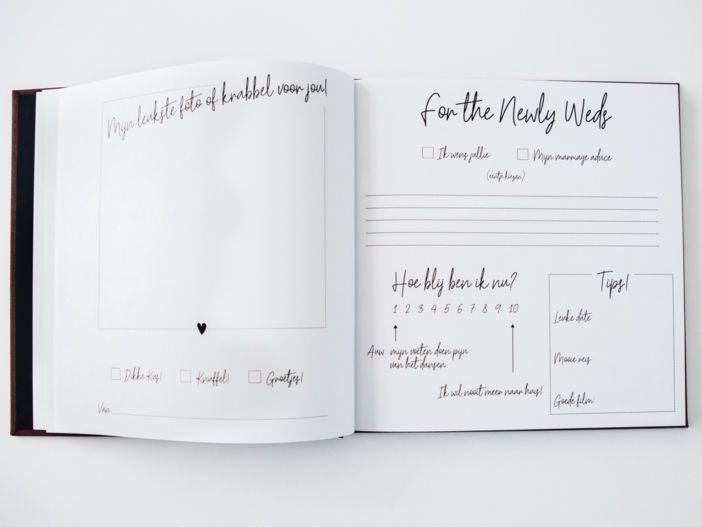 Mijn leukste foto of krabbel voor jou!
Dikke Kus! Knuffel! Groetjes!
Van
For the Newly Weds
Ik wens jullie Mijn marriage advice
(eentje kiezen)
Hoe blij ben ik nu?
1 2 3 4 5 6 7 8 9 10
Auw mijn voeten doen pijn
van het dansen
Ik wil nooit meer naar huis!
Tips!
Leuke date
Mooie reis
Goede film